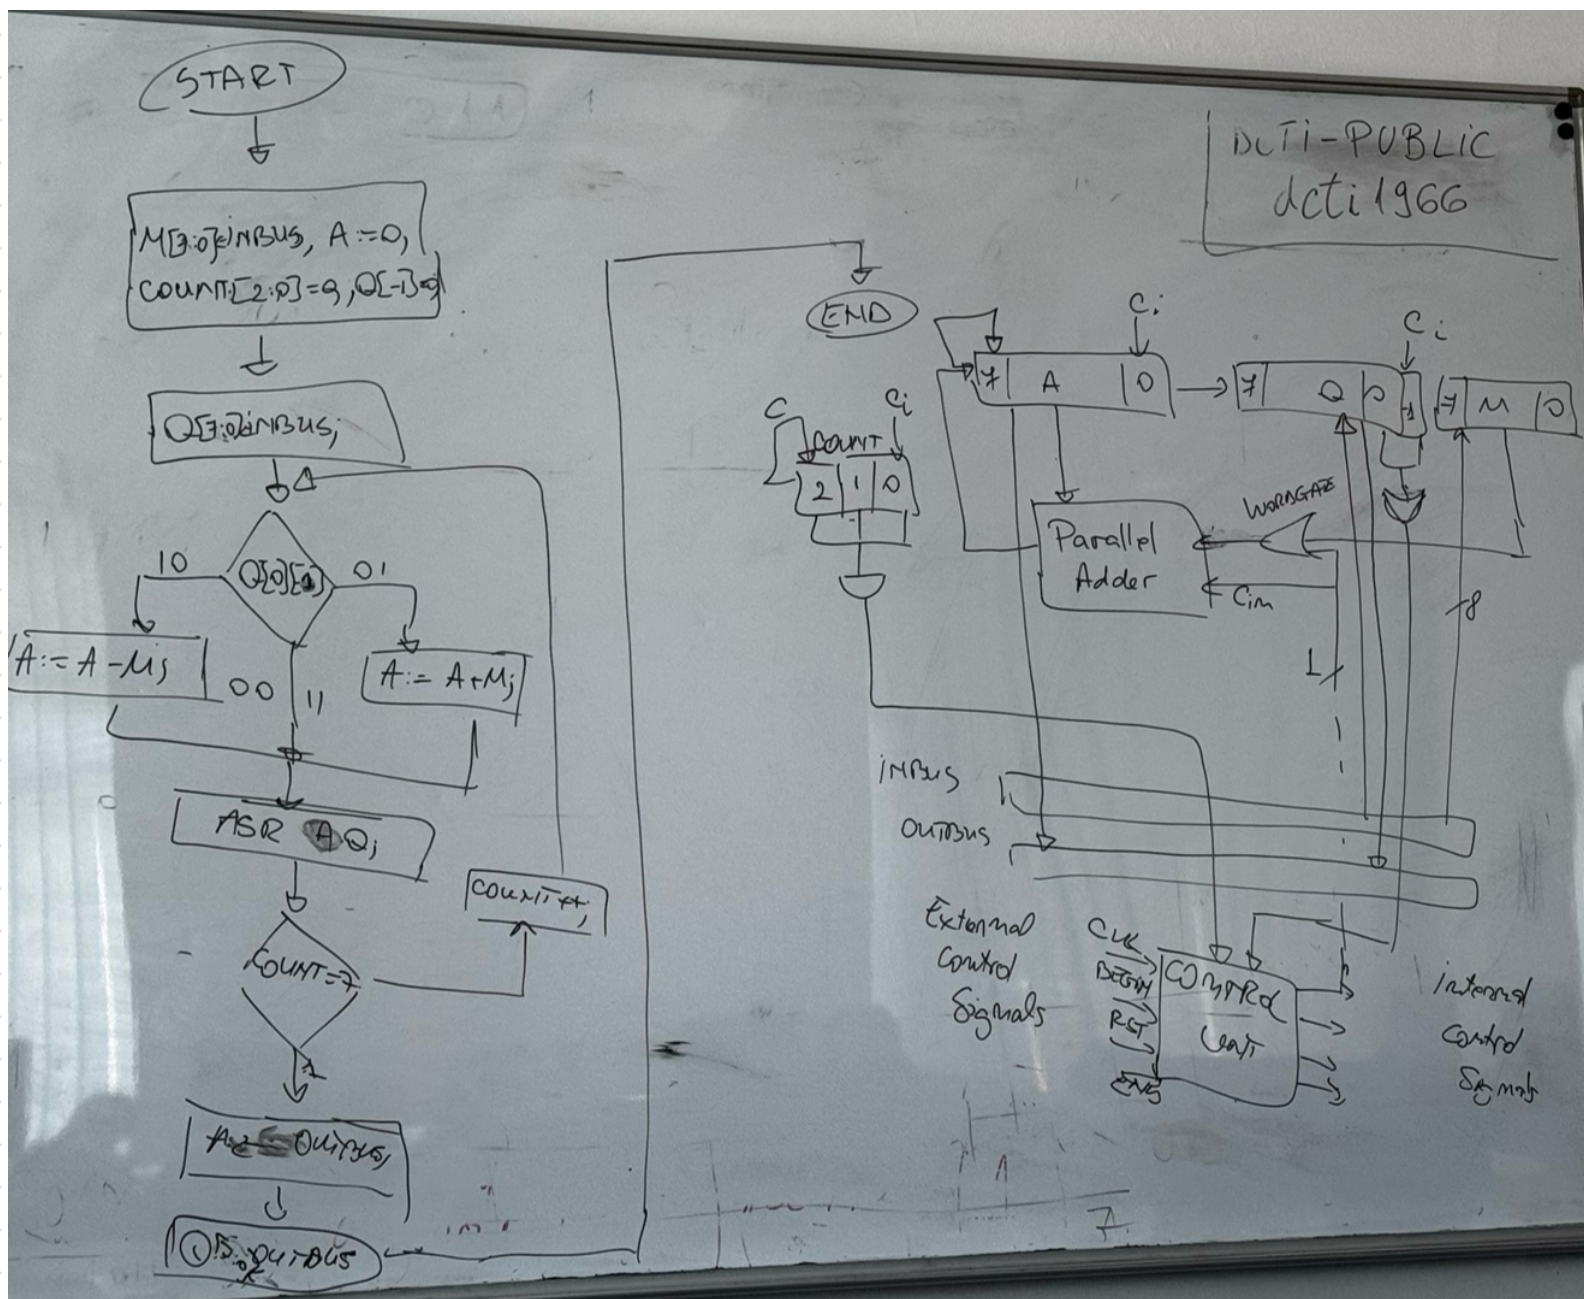 START
M[7:0]:=INBUS, A:=0,
COUNT[2:0]=0, Q[-1]=0
Q[7:0]:=INBUS;
10
Q[0][-1]
01
A:= A-M;
00
11
A:= A+M;
ASR AQ;
COUNT++;
COUNT=7
OUTBUS,
OUTBUS
END
DCTI-PUBLIC
dcti1966
Ci
Ci
7 A 0
7 Q 0 -1
7 M 0
C
Ci
COUNT
2 1 0
Parallel
Adder
WORDGATE
Cin
8
1
INBUS
OUTBUS
External
Control
Signals
CLK
BEGIN
RST
END
CONTROL
Unit
internal
control
Signals
7